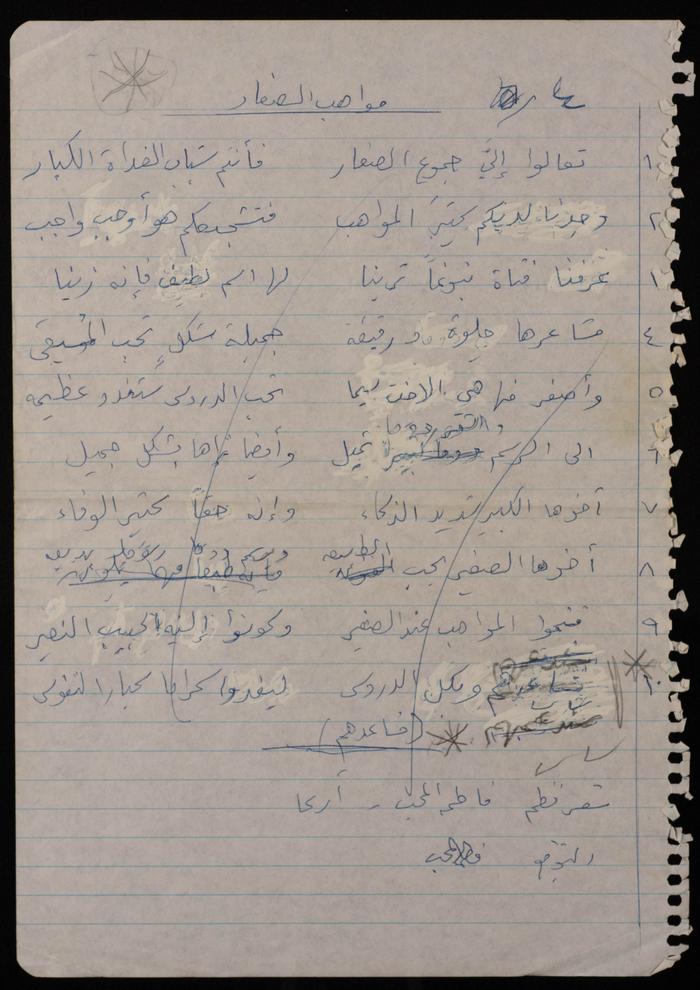 مواهب الصغار
١ تعالوا إليّ جموع الصغار فأنتم شباب الغداة الكبار
٢ وجدنا لديكم كثير المواهب فتشجيعكم هو أوجب واجب
٣ عرفنا فتاة نبوغاً ترينا لها اسم لطيف فإنه زينا
٤ مشاعرها حلوة رقيقة جميلة شكل تحب الموسيقى
٥ وأصغر منها هي الأخت ريما تحب الدروس ستغدو عظيمه
والشعر دوما
٦ الى الرسم تميل وأيضا نراها بشكل جميل
٧ أخوها الكبير شديد الذكاء وإنه حقاً كثير الوفاء
٨ أخوها الصغير يحب الطبيعه
٩ فنحوا المواهب عند الصغير وكونوا إليه الحبيب النصير
١٠ وبكل الدروس ليغدوا كراما كبارا النفوس
(فساعدهم)
شعر نظم فاطمة المحب - أريحا
التوقيع